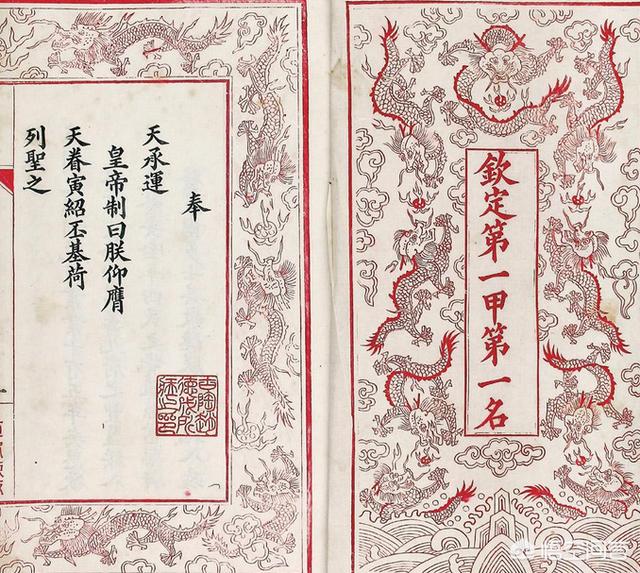 欽定第一甲第一名
奉
天承運
皇帝制曰朕仰膺
天眷寅紹丕基荷
列聖之